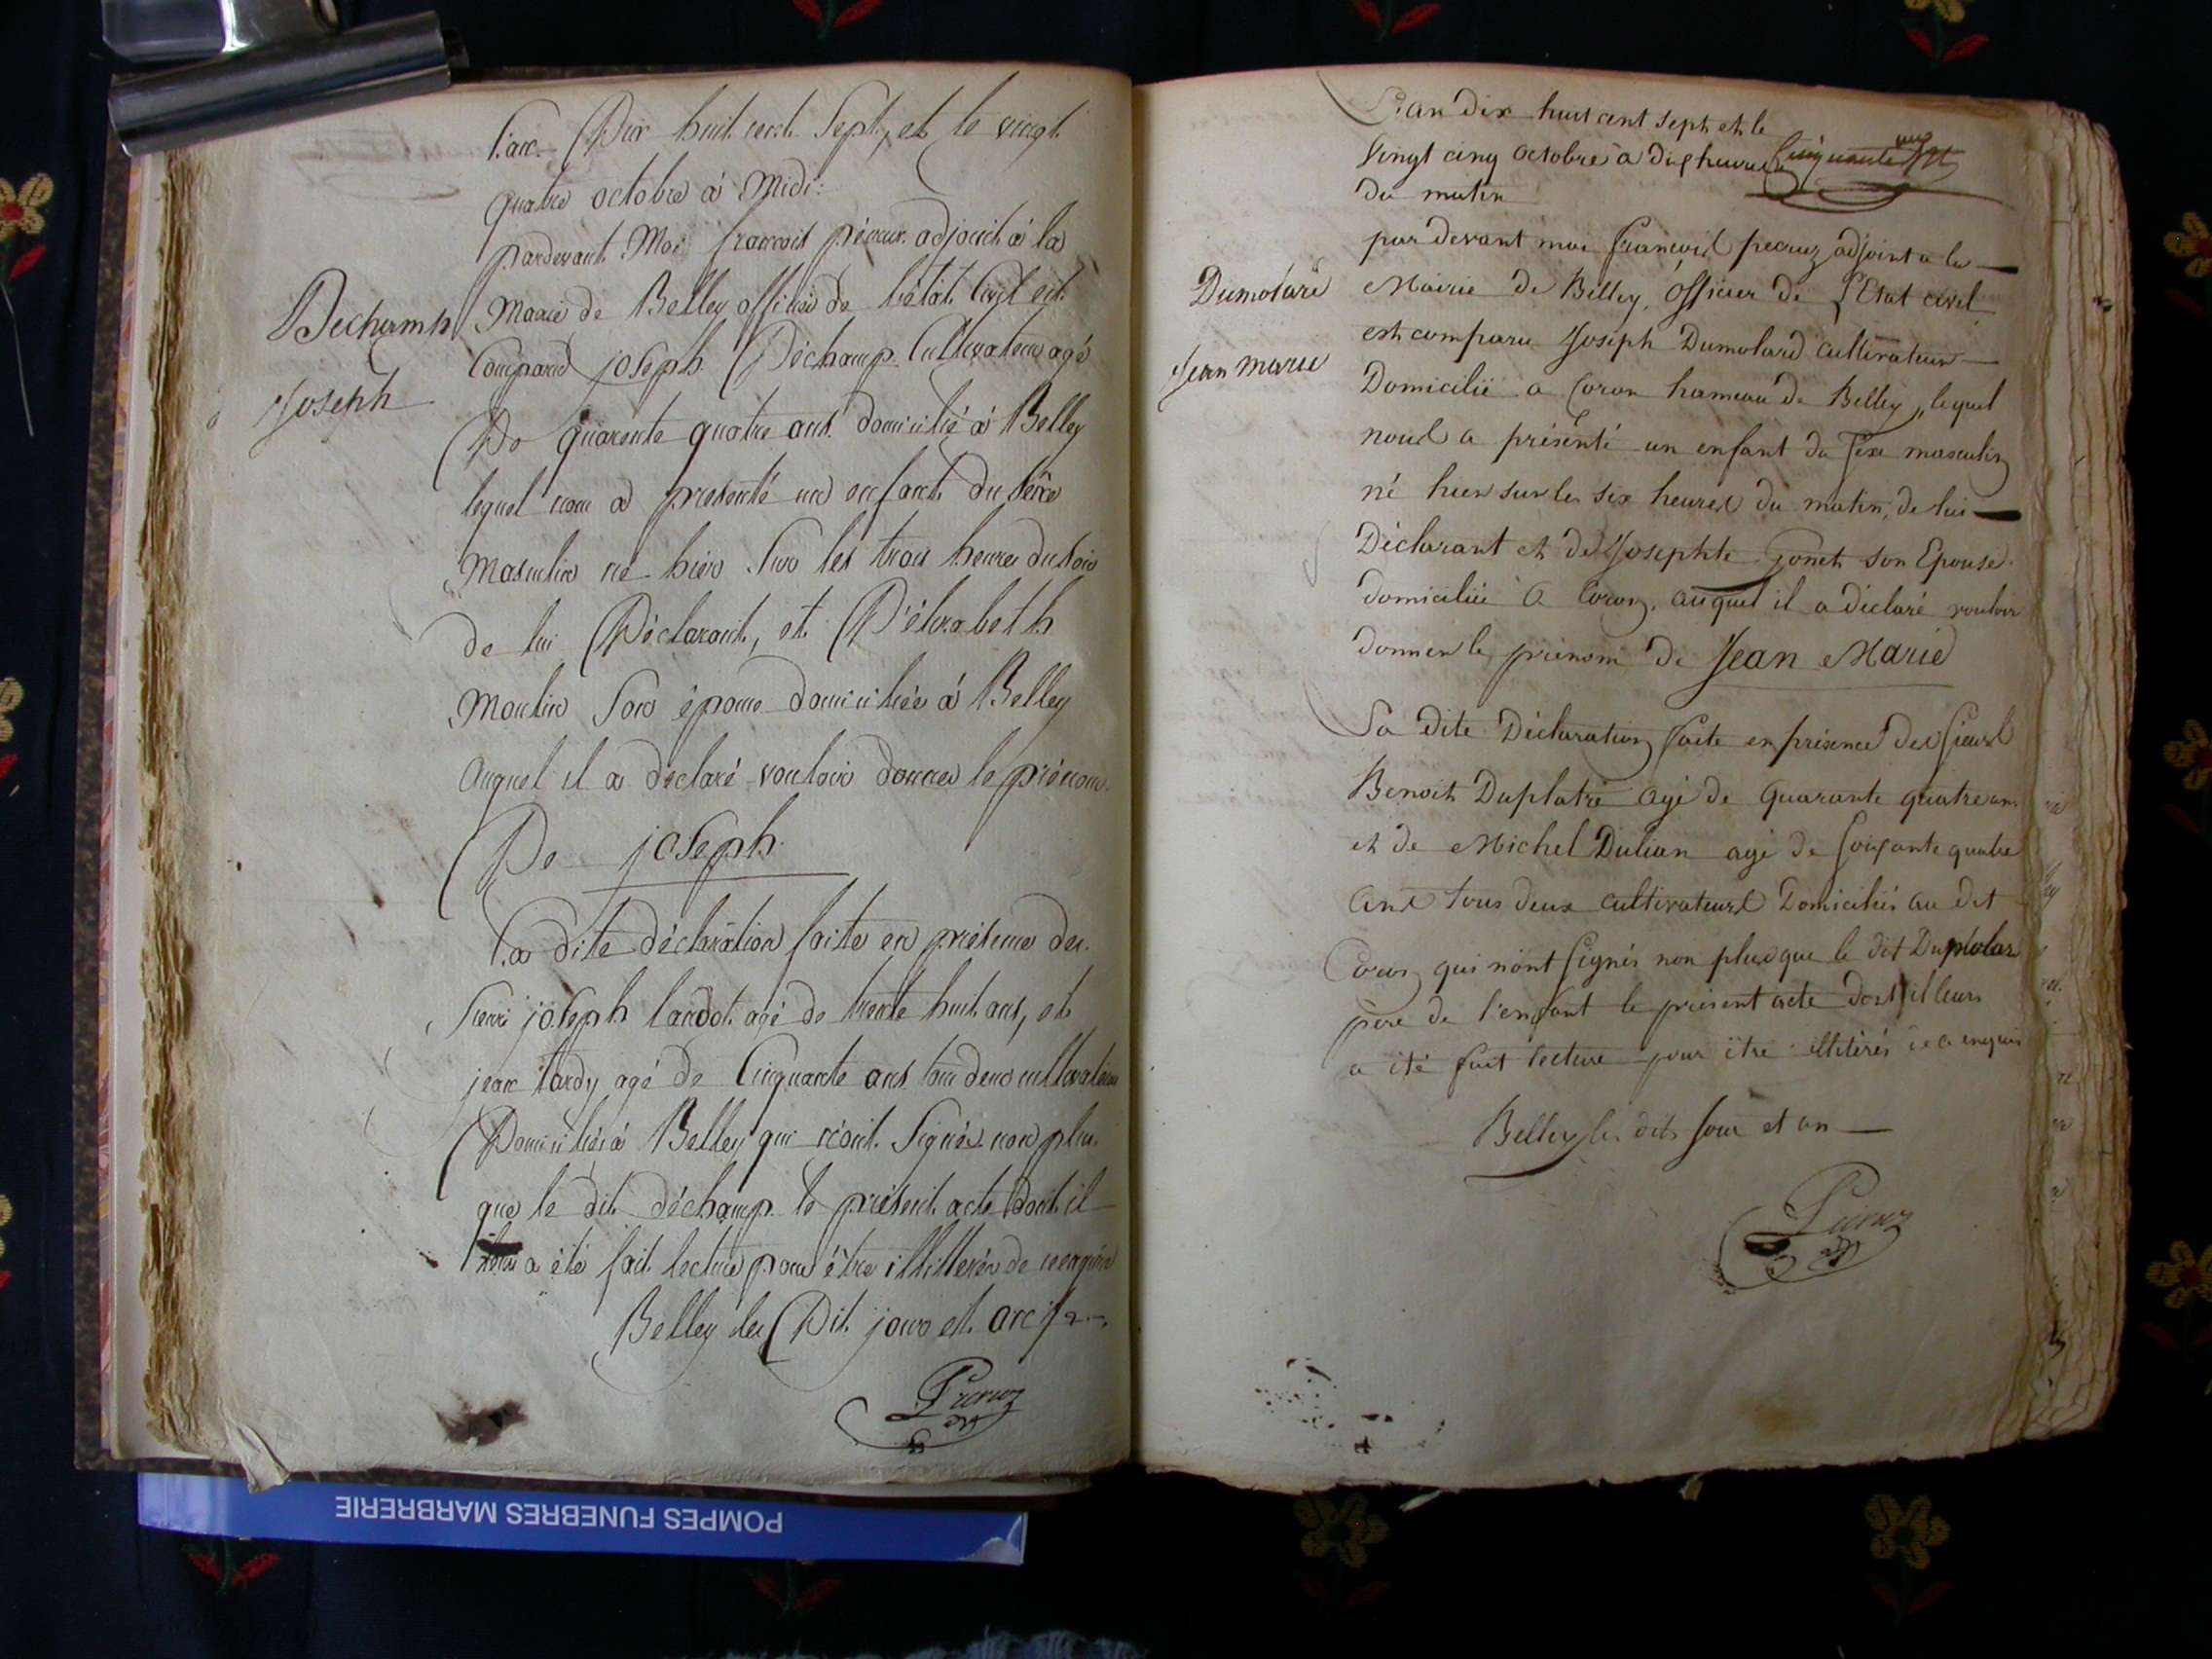 Dechamp
Joseph
l'an Dix huit cent Sept, et le vingt
quatre octobre à Midi:
pardevant Moi francois pécruz adjoint à la
Mairie de Belley officier de l'état Civil est
Comparu joseph Déchamp Cultivateur agé
De quarente quatre ans domicilié à Belley
lequel nous a presenté un enfant du sexe
Masculin né hier Sur les trois heures du soir
de lui Déclarant, et D'élisabeth
Moulin Son épouse domiciliée à Belley
Auquel il a déclaré vouloir donner le prénom
De joseph
la dite déclaration faite en présence des
Sieurs joseph landot agé de trente huit ans, et
jean tardy agé de Cinquante ans tous deux cultivateurs
Domiciliés à Belley qui n'ont Signés non plus
que le dit déchamp le présent acte dont il
a été fait lecture pour être illitterés de ce enquis
Belley les Dit jour et an
Pecruz
Cinquante
Dumolard
Jean Marie
L'an dix huit cent sept et le
Vingt cinq octobre à dix heures
du matin
par devant moi Francois pecruz adjoint a la
Mairie de Belley, officier de L'Etat civil
est comparu Joseph Dumolard cultivateur
Domicilié a Coron hameau de Belley, lequel
nous a présenté un enfant du sexe masculin
né hier sur les six heures du matin, de lui
Déclarant et de Josephte jonet son Epouse
domiciliée à Coron, auquel il a déclaré vouloir
donner le prénom de Jean Marie
La dite Déclaration faite en présence des sieurs
Benoit Duplatre agé de quarante quatre ans
et de Michel Dulian agé de soixante quatre
ans tous deux cultivateurs Domiciliés au dit
Coron qui n'ont signés non plus que le dit
père de l'enfant le présent acte dont il leurs
a été fait lecture pour être illitérés de ce enquis
Belley les dits jour et an
Pecruz
POMPES FUNEBRES MARBRERIE